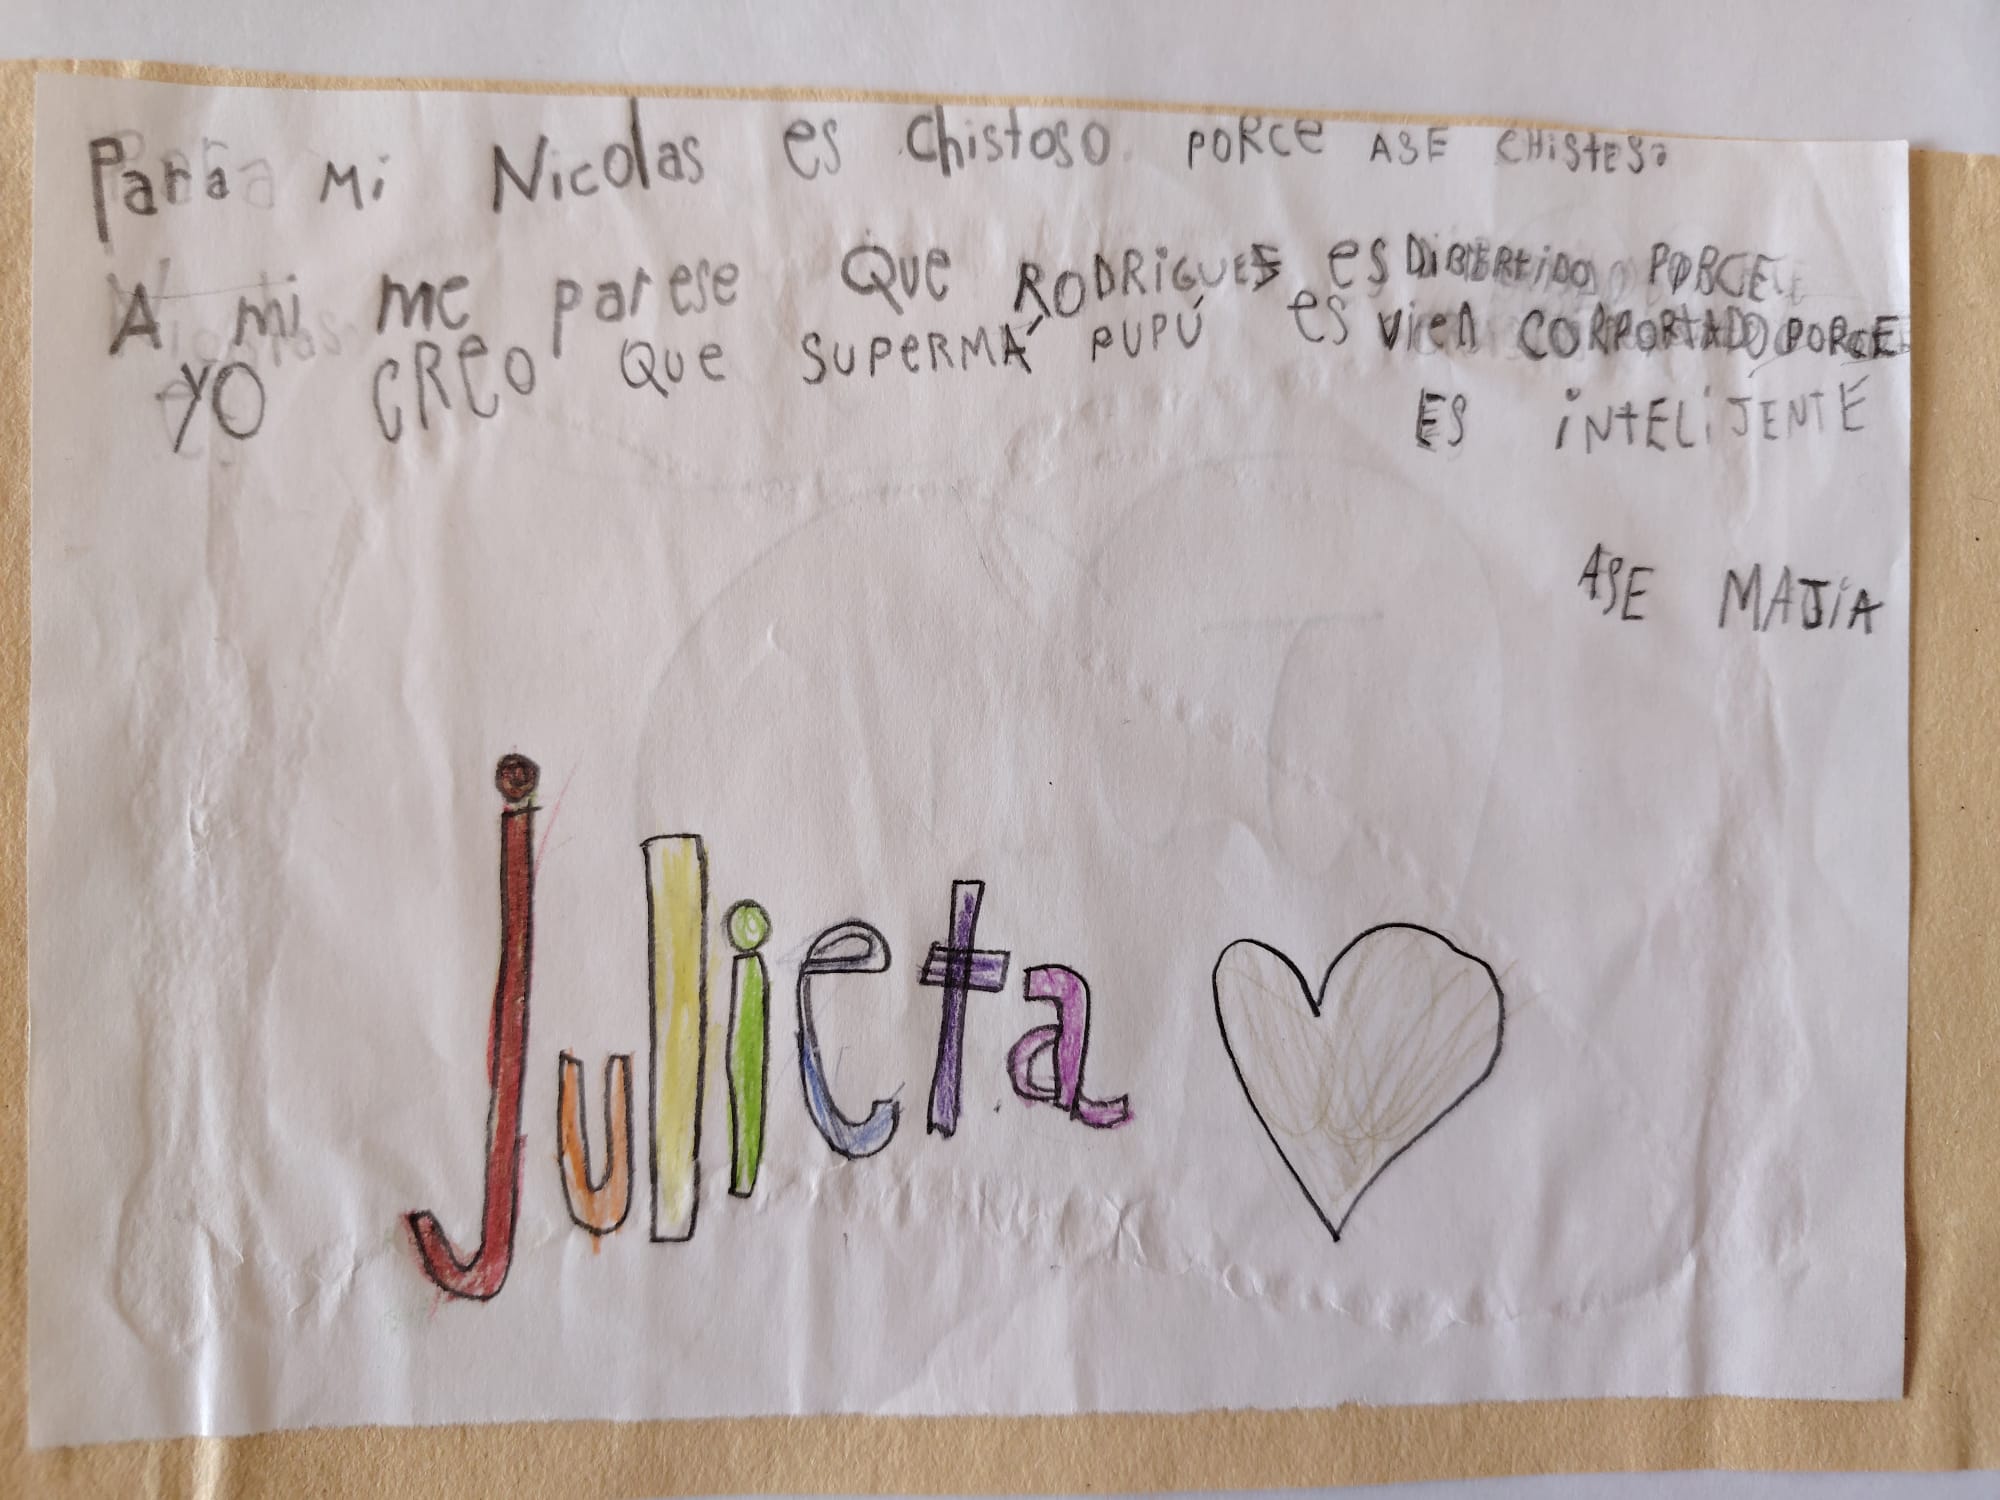 Para mi Nicolas es chistoso. PORCE ASE CHiStES
A mi me parese Que RODRIGUES es DiBERtiDO PORCE
YO CREO QUE SUPERMÁ PUPÚ es vien CORPORTADO PORCE
ES iNtELiJENTE
ASE MAJiA
Julieta